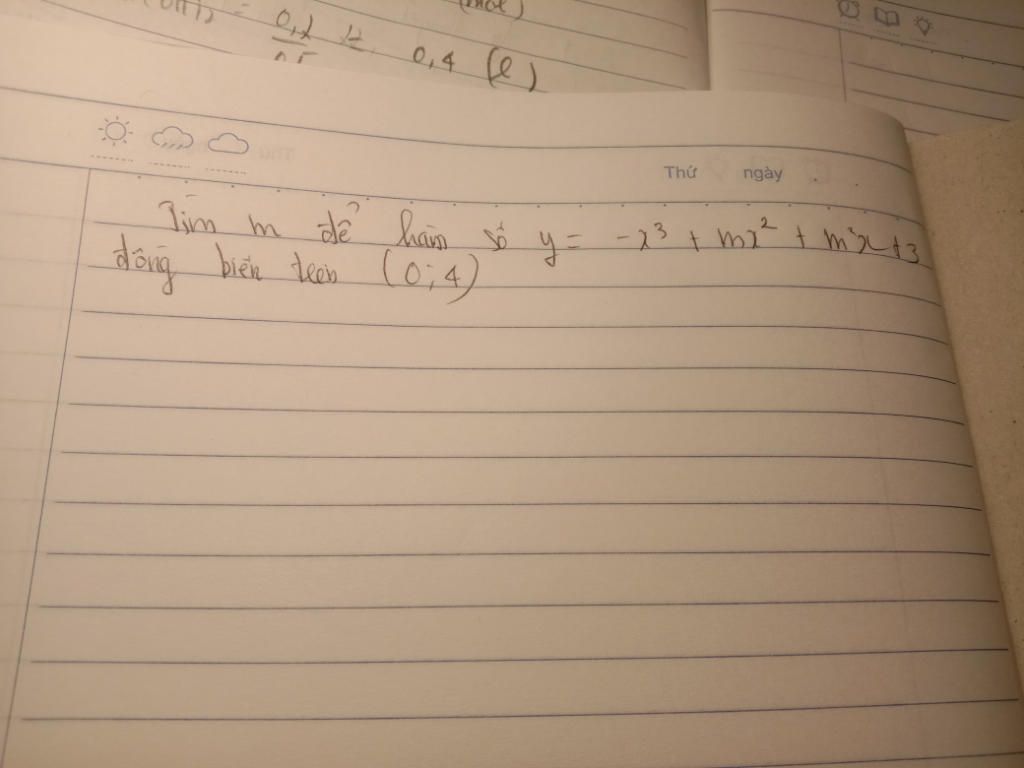 = 0,2 = 0,4 (l)
(mol)
Thứ ngày
Tìm m để hàm số y = -x³ + mx² + m²x + 3
đồng biến trên (0; 4)